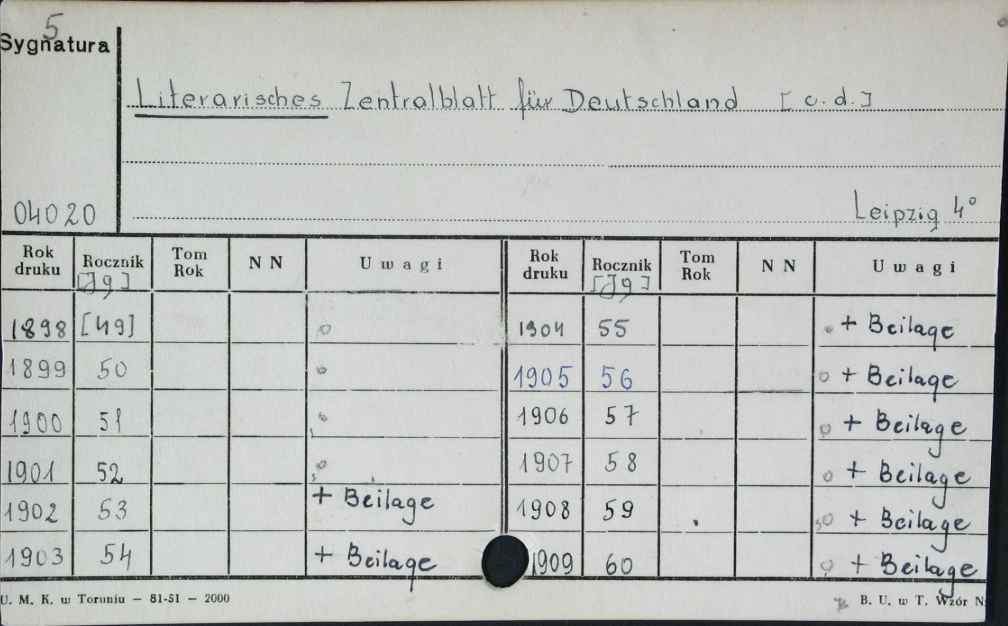 5
Sygnatura
Literarisches Zentralblatt für Deutschland [c.d.]
04020
Leipzig 4°
Rok druku Rocznik [Jg] Tom Rok NN Uwagi Rok druku Rocznik [Jg] Tom Rok NN Uwagi
1898 [49] 1904 55 + Beilage
1899 50 1905 56 + Beilage
1900 51 1906 57 + Beilage
1901 52 1907 58 + Beilage
1902 53 + Beilage 1908 59 + Beilage
1903 54 + Beilage 1909 60 + Beilage
U. M. K. w Toruniu — 81-51 — 2000
B. U. w T. Wzór N